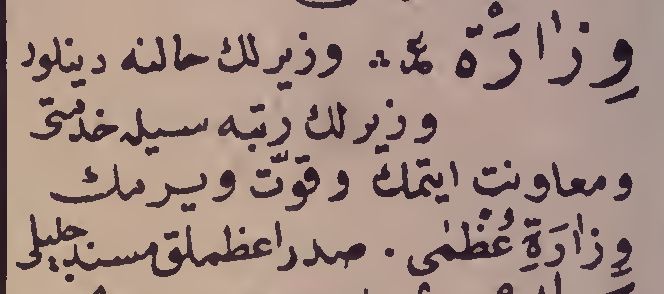 وِزارَةْ ؏ ؞ وزيرلك حالنه دينلور
وزيرلك رتبه سيله خدمتى
ومعاونت ايتمك وقوّت ويرمك
وِزارَةِ عُظْمٰى . صدراعظملق مسند جليلى